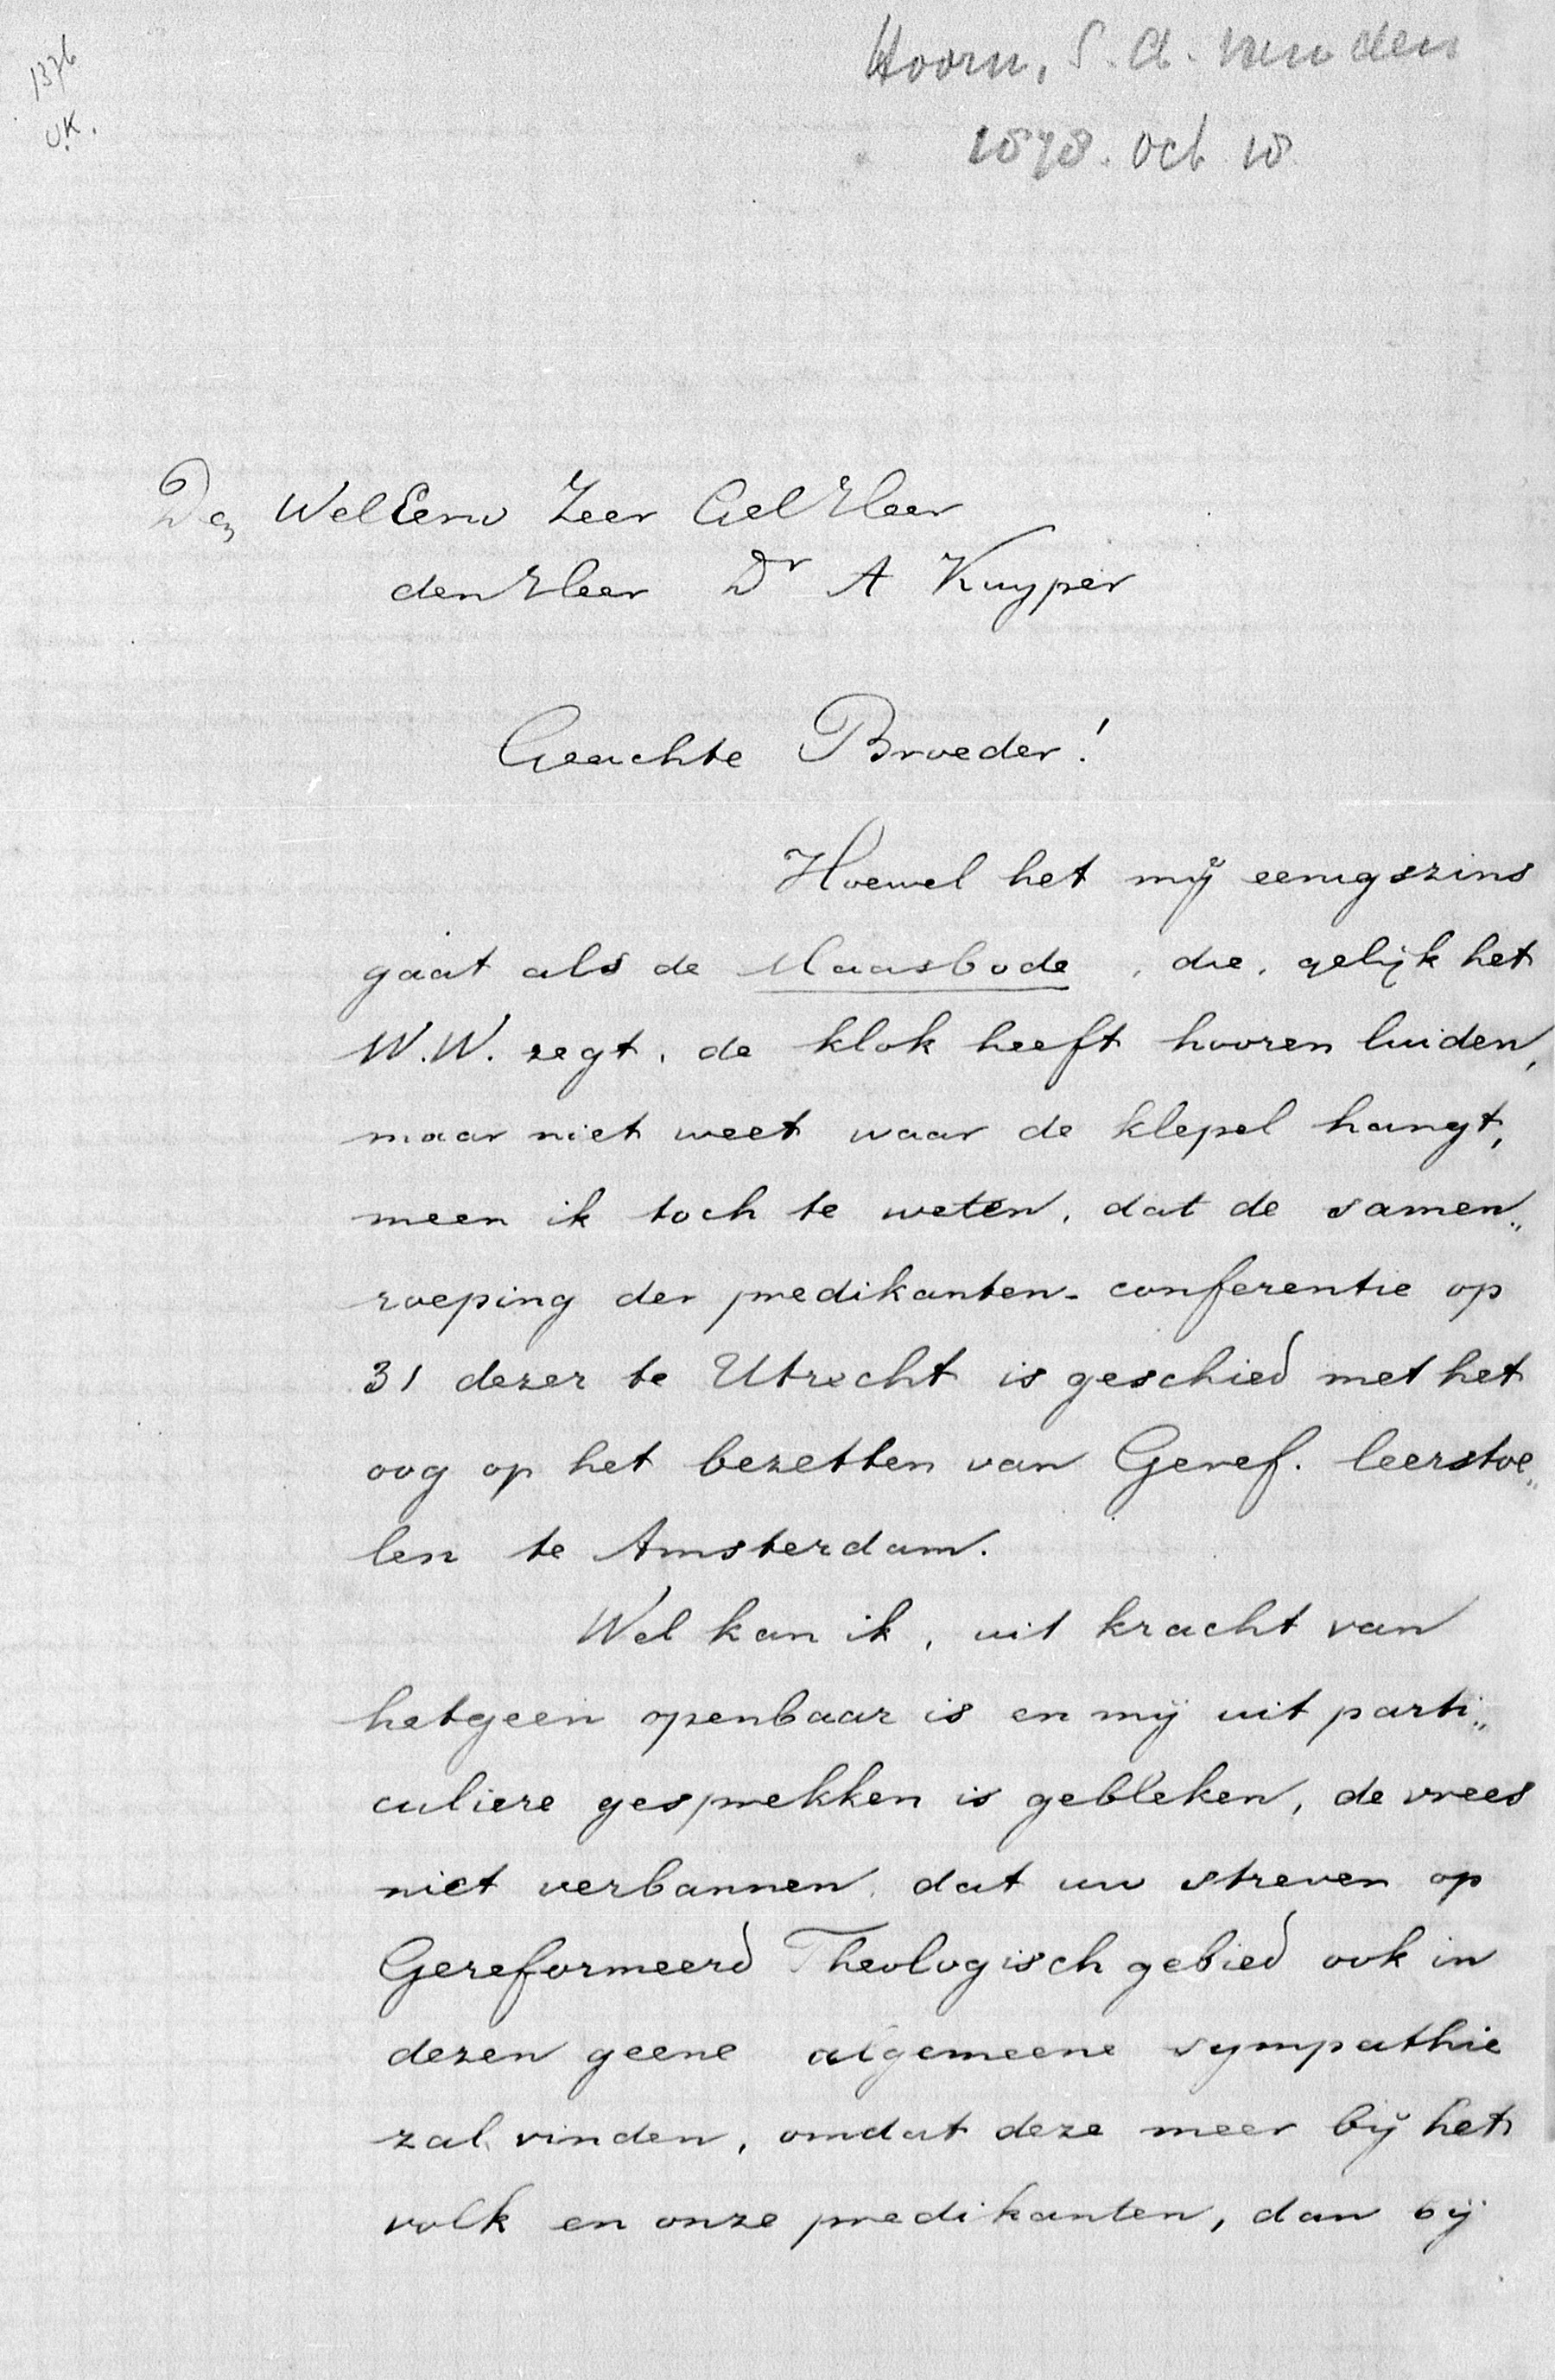 1376
v.K.
Hoorn, S. A. van den
1878. Oct. 18
Den WelEerw Zeer Gel Heer
den Heer Dr A Kuyper
Geachte Broeder!
Hoewel het mij eenigszins
gaat als de Maasbode, die, gelijk het
W.W. zegt, de klok heeft hooren luiden,
maar niet weet waar de klepel hangt,
meen ik toch te weten, dat de samen„
roeping der predikanten-conferentie op
31 dezer te Utrecht is geschied met het
oog op het bezetten van Geref. leerstoe„
len te Amsterdam.
Wel kan ik, uit kracht van
hetgeen openbaar is en mij uit parti„
culiere gesprekken is gebleken, de vrees
niet verbannen, dat uw streven op
Gereformeerd Theologisch gebied ook in
dezen geene algemeene sympathie
zal vinden, omdat deze meer bij het
volk en onze predikanten, dan bij